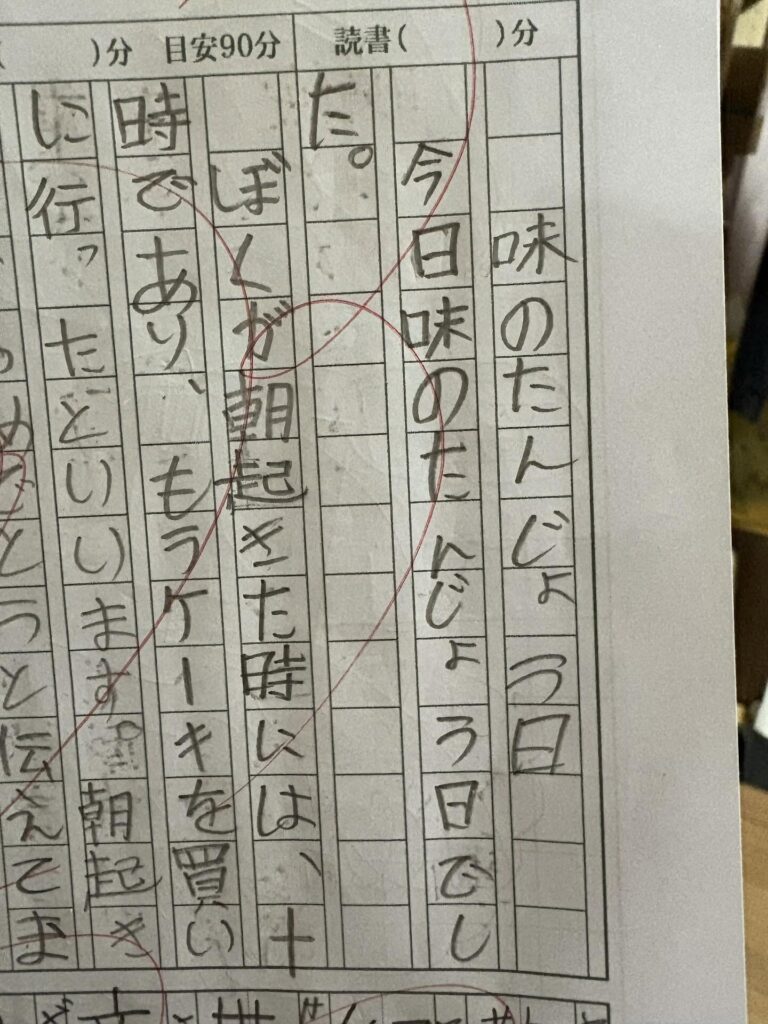 )分 目安90分 読書( )分
味のたんじょう日
今日味のたんじょう日でし
た。
ぼくが朝起きた時には、十
時であり、もうケーキを買い
に行ったといいます。朝起き
めでとうと伝えてま